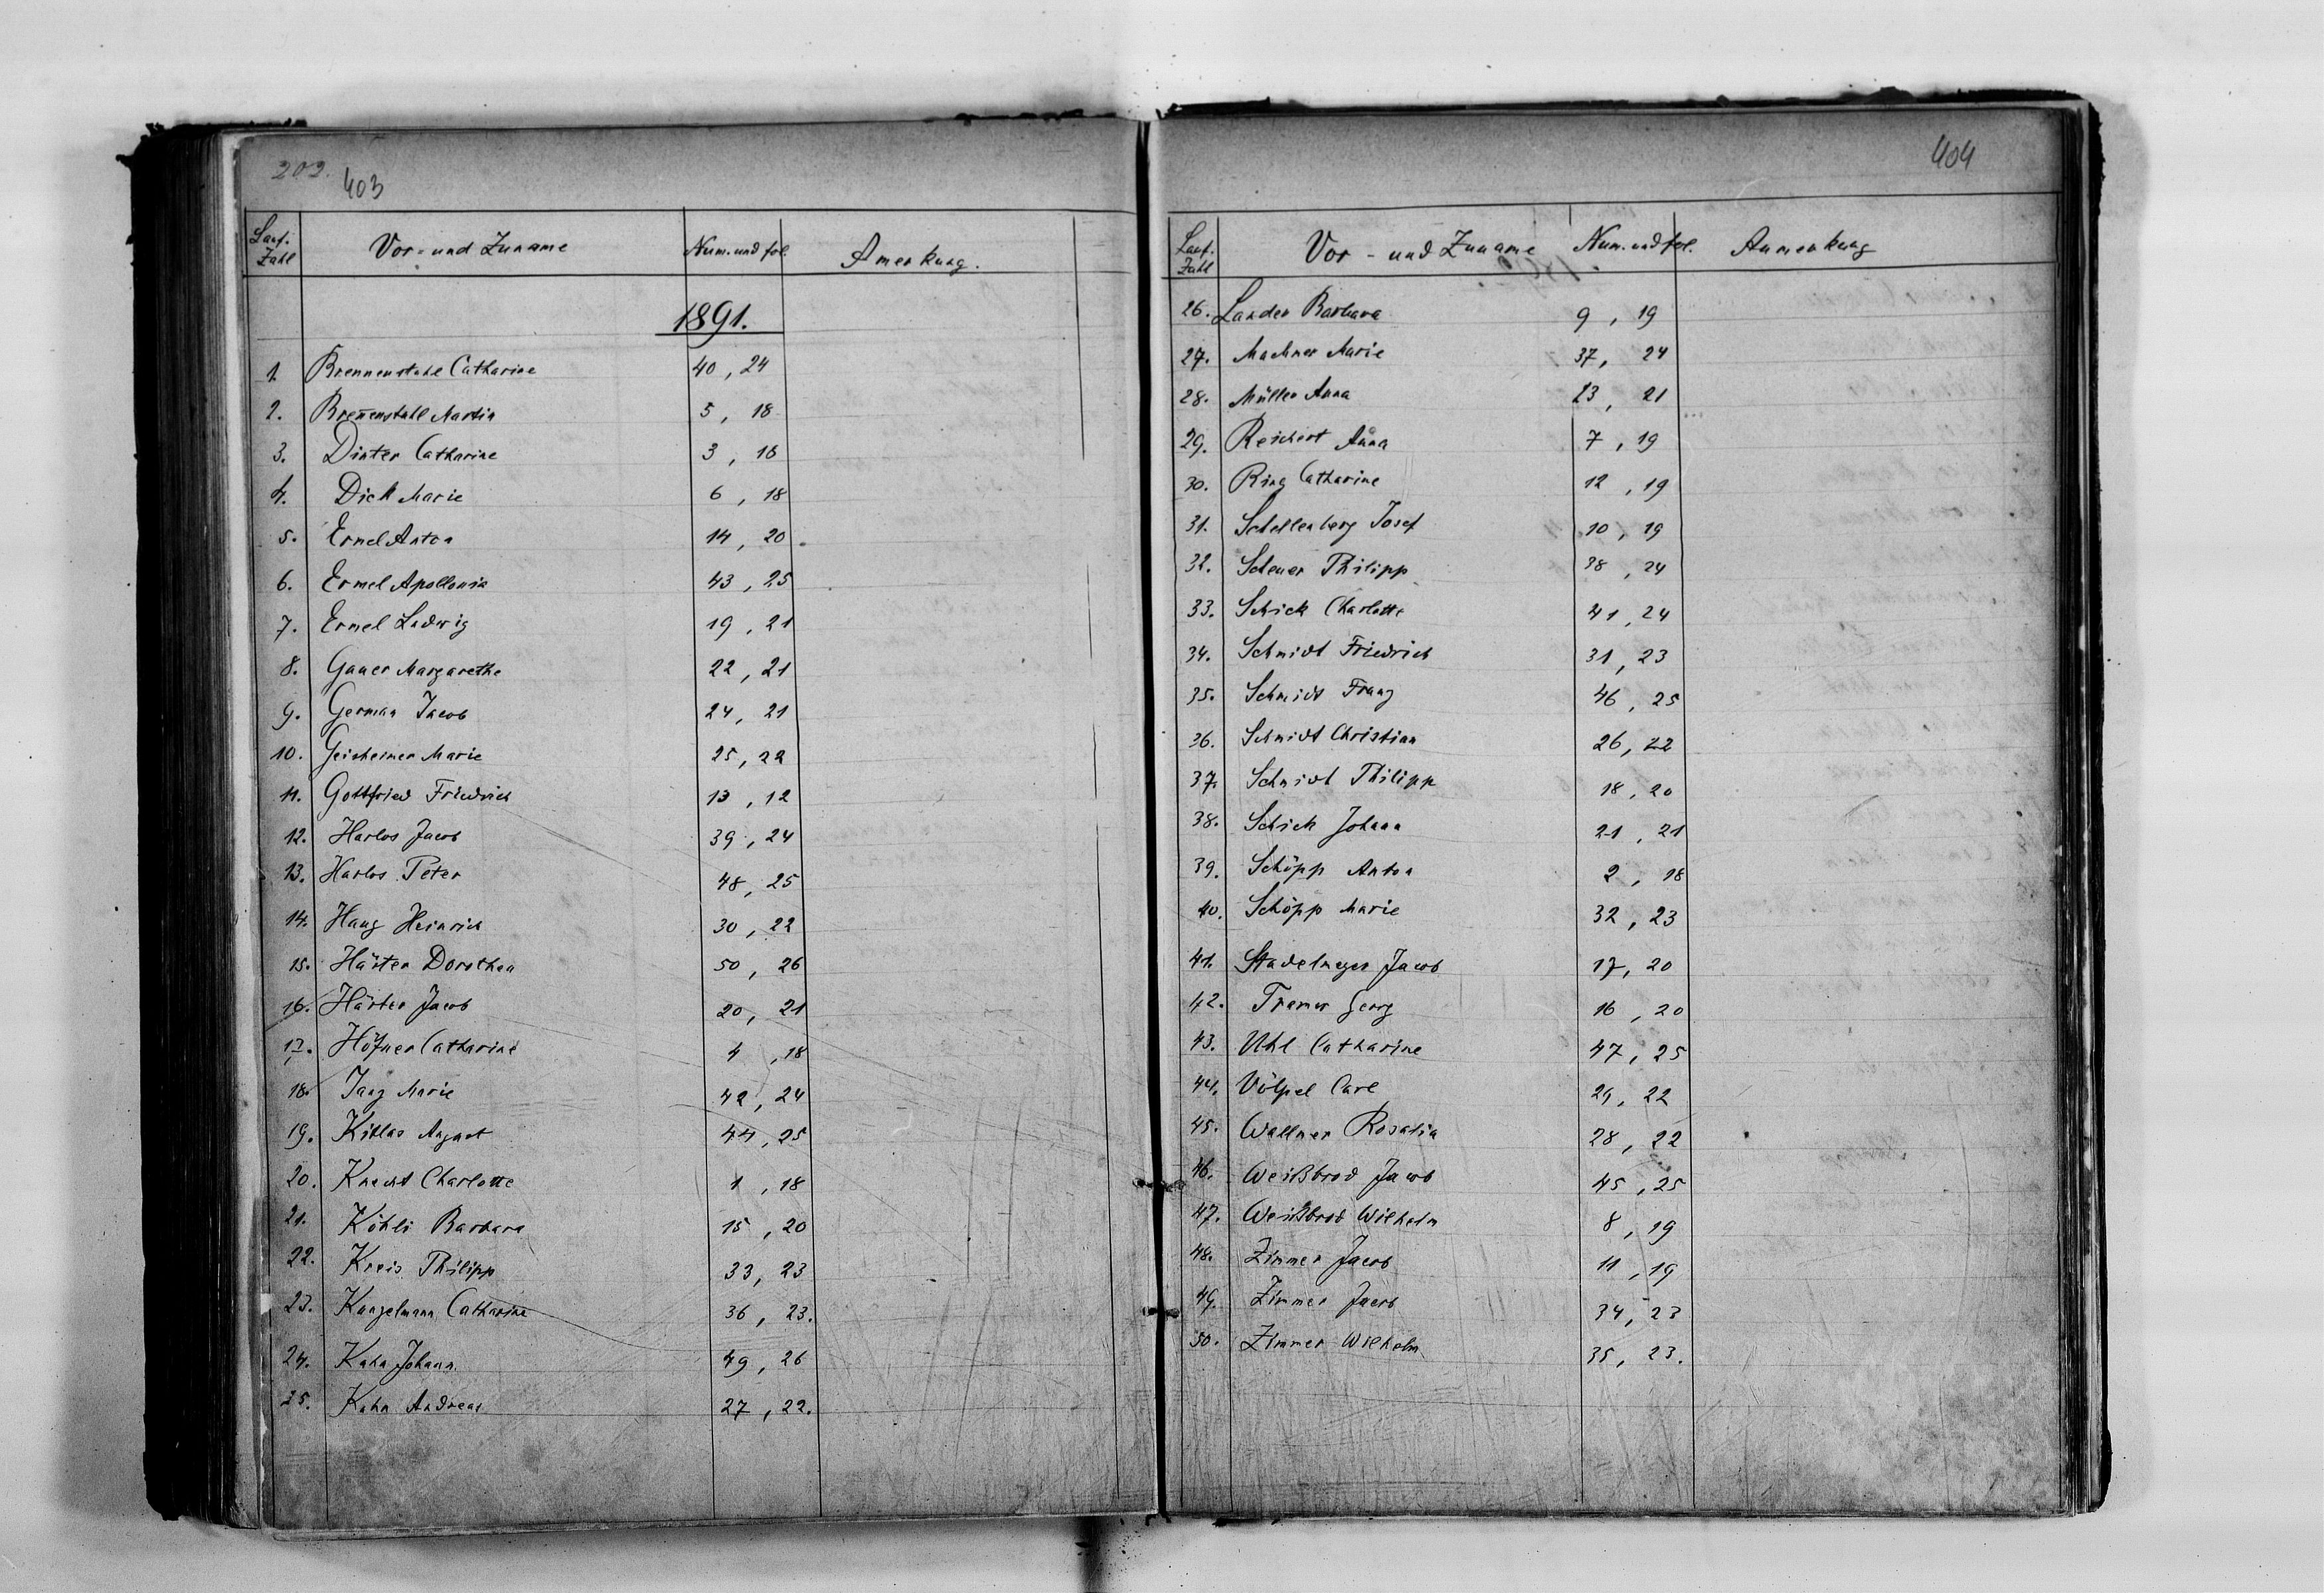 202.
403
Lauf. Zahl Vor- und Zuname Num. und fol. Amerkung.
1891.
1. Brennenstahl Catharine 40, 24
2. Breñenstahl Martin 5, 18
3. Dinter Catharine 3, 18
4. Dick Marie 6, 18
5. Ermel Anton 14, 20
6. Ermel Apollonia 43, 25
7. Ermel Ludwig 19, 21
8. Gauer Margarethe 22, 21
9. German Jacob 24, 21
10. Geisheimer Marie 25, 22
11. Gottfried Friedrich 13, 12
12. Harlos Jacob 39, 24
13. Harlos Peter 48, 25
14. Haug Heinrich 30, 22
15. Härter Dorothea 50, 26
16. Härter Jacob 20, 21
17. Höfner Catharine 4, 18
18. Jaug Marie 42, 24
19. Kiklas August 44, 25
20. Knecht Charlotte 1, 18
21. Köhli Barbara 15, 20
22. Kreis Philipp 33, 23
23. Kunzelmann Catharine 36, 23.
24. Kuhn Johann 49, 26
25. Kuhn Andreas 27, 22.
404
Lauf. Zahl Vor- und Zuname Num. und fol. Anmerkung
26. Lander Barbara 9, 19
27. Machmer Marie 37, 24
28. Müller Anna 23, 21
29. Reichert Anna 7, 19
30. Ring Catharine 12, 19
31. Schellenberg Josef 10, 19
32. Scheuer Philipp 38, 24
33. Schick Charlotte 41, 24
34. Schmidt Friedrich 31, 23
35. Schmidt Franz 46, 25
36. Schmidt Christian 26, 22
37. Schmidt Philipp 18, 20
38. Schick Johann 21, 21
39. Schöpp Anton 2, 18
40. Schöpp Marie 32, 23
41. Stadelmeyer Jacob 17, 20
42. Georg 16, 20
43. Uhl Catharine 47, 25
44. Völpel Carl 29, 22
45. Wallner Rosalia 28, 22
46. Weißbrod Jacob 45, 25
47. Weißbrod Wilhelm 8, 19
48. Zimmer Jacob 11, 19
49. Zimmer Jacob 34, 23
50. Zimmer Wilhelm 35, 23.